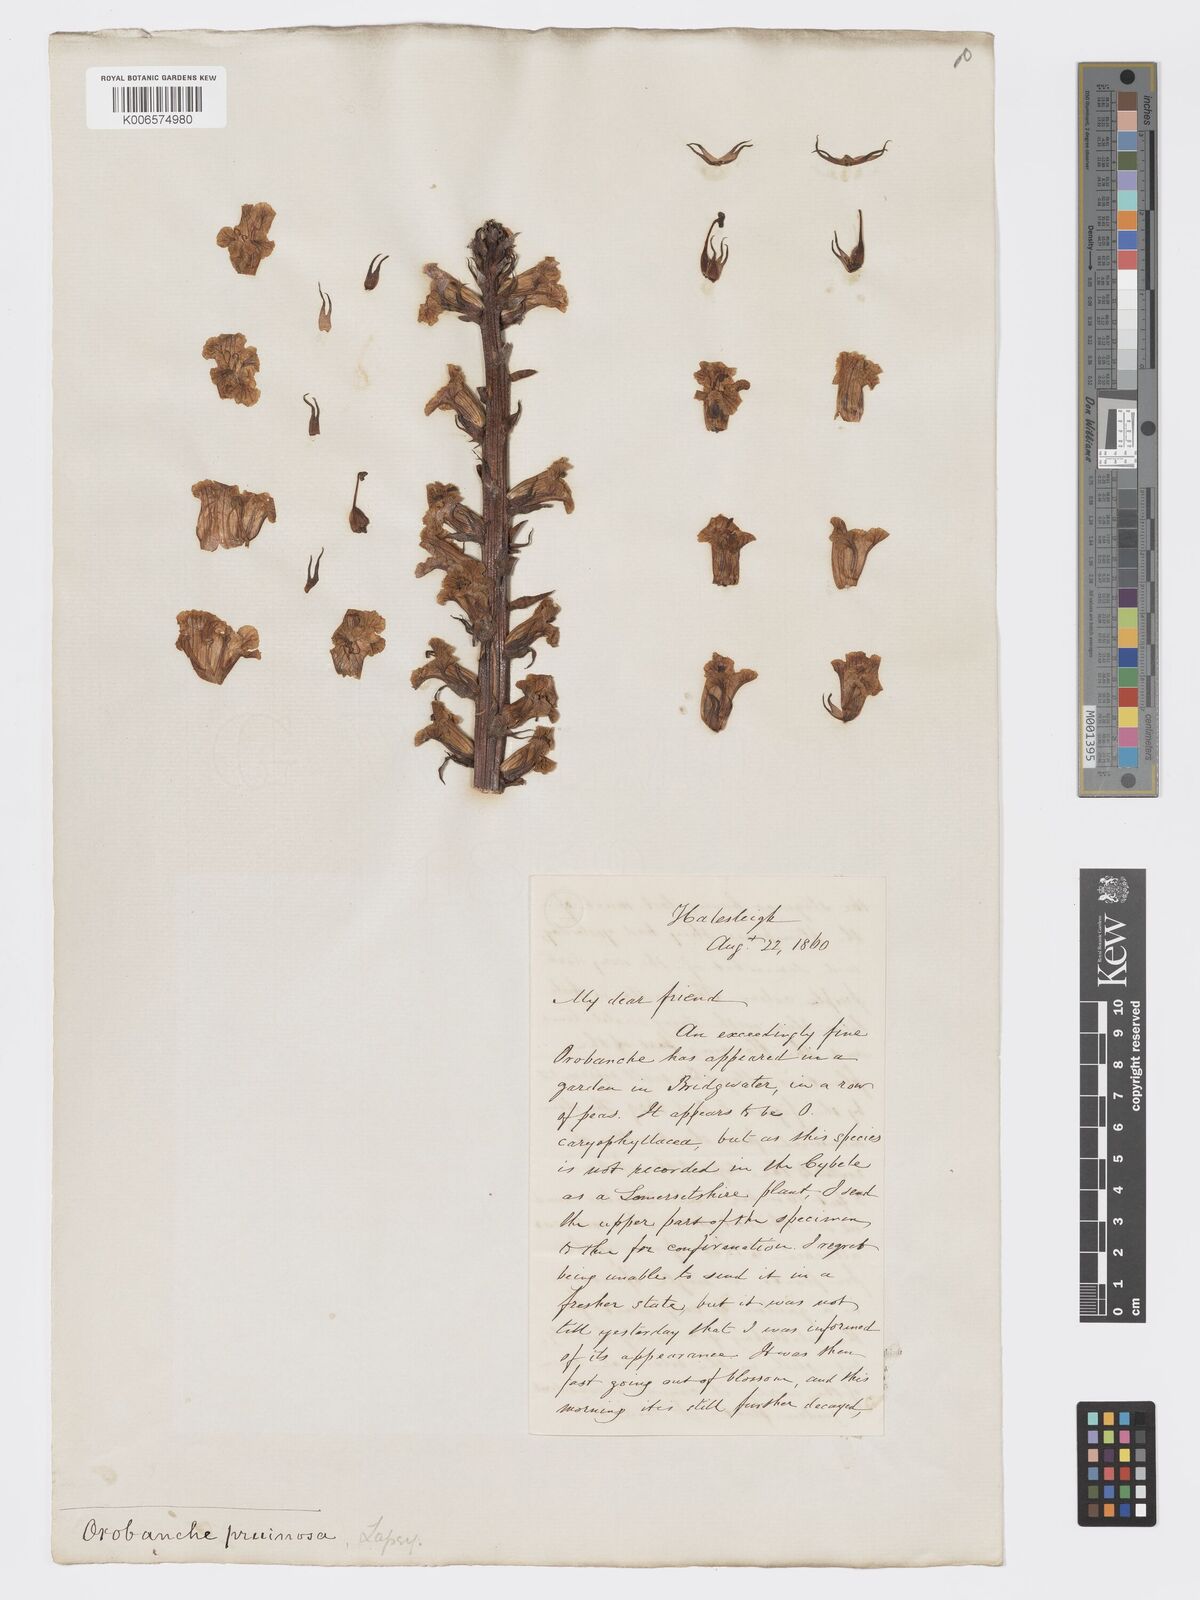 ROYAL BOTANIC GARDENS KEW
K006574980
Halesleigh
Augt. 22, 1860
My dear friend
An exceedingly fine
Orobanche has appeared in a
garden in Bridgwater, in a row
of peas. It appears to be O.
caryophyllacea, but as this species
is not recorded in the Cybele
as a Somersetshire plant, I send
the upper part of the specimen
to thee for confirmation. I regret
being unable to send it in a
fresher state, but it was not
till yesterday that I was informed
of its appearance. It was then
fast going out of blossom, and this
morning it is still further decayed,
Orobanche pruinosa, Lapey.
inches
Density
Don Williams
M001395
centimeters
Kew
Royal Botanic Gardens
copyright reserved
0 1 2 3 4 5 6 7 8 9 10
cm